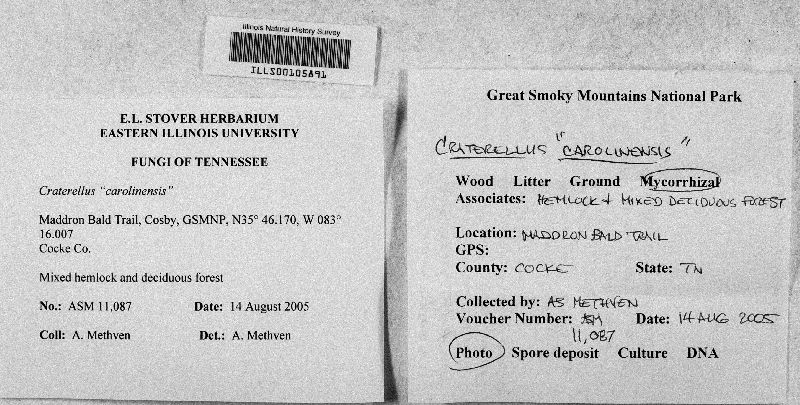 Illinois Natural History Survey
ILLS00105891
E.L. STOVER HERBARIUM
EASTERN ILLINOIS UNIVERSITY
FUNGI OF TENNESSEE
Craterellus "carolinensis"
Maddron Bald Trail, Cosby, GSMNP, N35° 46.170, W 083°
16.007
Cocke Co.
Mixed hemlock and deciduous forest
No.: ASM 11,087 Date: 14 August 2005
Coll: A. Methven Det.: A. Methven
Great Smoky Mountains National Park
CRATERELLUS "CAROLINENSIS"
Wood Litter Ground Mycorrhizal
Associates: HEMLOCK & MIXED DECIDUOUS FOREST
Location: MADDRON BALD TRAIL
GPS:
County: COCKE State: TN
Collected by: AS METHVEN
Voucher Number: ASM Date: 14 AUG 2005
11,087
Photo Spore deposit Culture DNA